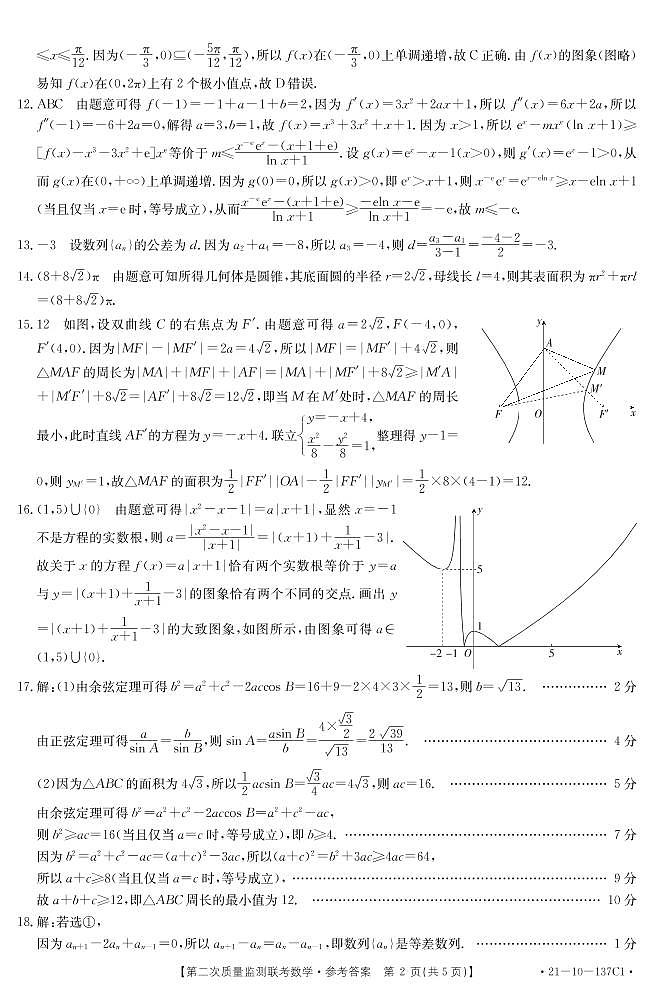 ≤x≤π/12.因为(−π/3,0)⊆(−5π/12,π/12),所以 f(x)在(−π/3,0)上单调递增,故 C 正确.由 f(x)的图象(图略)
易知 f(x)在(0,2π)上有 2 个极小值点,故 D 错误.
12. ABC 由题意可得 f(−1)=−1+a−1+b=2,因为 f′(x)=3x²+2ax+1,所以 f″(x)=6x+2a,所以
f″(−1)=−6+2a=0,解得 a=3,b=1,故 f(x)=x³+3x²+x+1.因为 x>1,所以 eˣ−mxᵉ(ln x+1)≥
[f(x)−x³−3x²+e]xᵉ等价于 m≤(x⁻ᵉeˣ−(x+1+e))/(ln x+1).设 g(x)=eˣ−x−1(x>0),则 g′(x)=eˣ−1>0,从
而 g(x)在(0,+∞)上单调递增.因为 g(0)=0,所以 g(x)>0,即 eˣ>x+1,则 x⁻ᵉeˣ=e^(x−eln x)≥x−eln x+1
(当且仅当 x=e 时,等号成立),从而(x⁻ᵉeˣ−(x+1+e))/(ln x+1)≥(−eln x−e)/(ln x+1)=−e,故 m≤−e.
13. −3 设数列{aₙ}的公差为 d.因为 a₂+a₄=−8,所以 a₃=−4,则 d=(a₃−a₁)/(3−1)=(−4−2)/2=−3.
14. (8+8√2)π 由题意可知所得几何体是圆锥,其底面圆的半径 r=2√2,母线长 l=4,则其表面积为 πr²+πrl
=(8+8√2)π.
15. 12 如图,设双曲线 C 的右焦点为 F′.由题意可得 a=2√2,F(−4,0),
F′(4,0).因为|MF|−|MF′|=2a=4√2,所以|MF|=|MF′|+4√2,则
△MAF 的周长为|MA|+|MF|+|AF|=|MA|+|MF′|+8√2≥|M′A|
+|M′F′|+8√2=|AF′|+8√2=12√2,即当 M 在 M′处时,△MAF 的周长
最小,此时直线 AF′的方程为 y=−x+4.联立{y=−x+4, x²/8−y²/8=1,整理得 y−1=
0,则 y_M′=1,故△MAF 的面积为1/2|FF′||OA|−1/2|FF′||y_M′|=1/2×8×(4−1)=12.
y
A
M
M′
F
O
F′
x
16. (1,5)∪{0} 由题意可得|x²−x−1|=a|x+1|,显然 x=−1
不是方程的实数根,则 a=|x²−x−1|/|x+1|=|(x+1)+1/(x+1)−3|.
故关于 x 的方程 f(x)=a|x+1|恰有两个实数根等价于 y=a
与 y=|(x+1)+1/(x+1)−3|的图象恰有两个不同的交点.画出 y
=|(x+1)+1/(x+1)−3|的大致图象,如图所示,由图象可得 a∈
(1,5)∪{0}.
y
5
1
−2 −1 O 5 x
17. 解:(1)由余弦定理可得 b²=a²+c²−2accos B=16+9−2×4×3×1/2=13,则 b=√13. …………… 2 分
由正弦定理可得a/sin A=b/sin B,则 sin A=asin B/b=(4×√3/2)/√13=2√39/13. …………… 4 分
(2)因为△ABC 的面积为 4√3,所以1/2acsin B=√3/4ac=4√3,则 ac=16. …………… 5 分
由余弦定理可得 b²=a²+c²−2accos B=a²+c²−ac,
则 b²≥ac=16(当且仅当 a=c 时,等号成立),即 b≥4. …………… 7 分
因为 b²=a²+c²−ac=(a+c)²−3ac,所以(a+c)²=b²+3ac≥4ac=64,
所以 a+c≥8(当且仅当 a=c 时,等号成立), …………… 9 分
故 a+b+c≥12,即△ABC 周长的最小值为 12. …………… 10 分
18. 解:若选①,
因为 aₙ₊₁−2aₙ+aₙ₋₁=0,所以 aₙ₊₁−aₙ=aₙ−aₙ₋₁,即数列{aₙ}是等差数列. …………… 1 分
【第二次质量监测联考数学·参考答案 第 2 页(共 5 页)】 ·21−10−137C1·